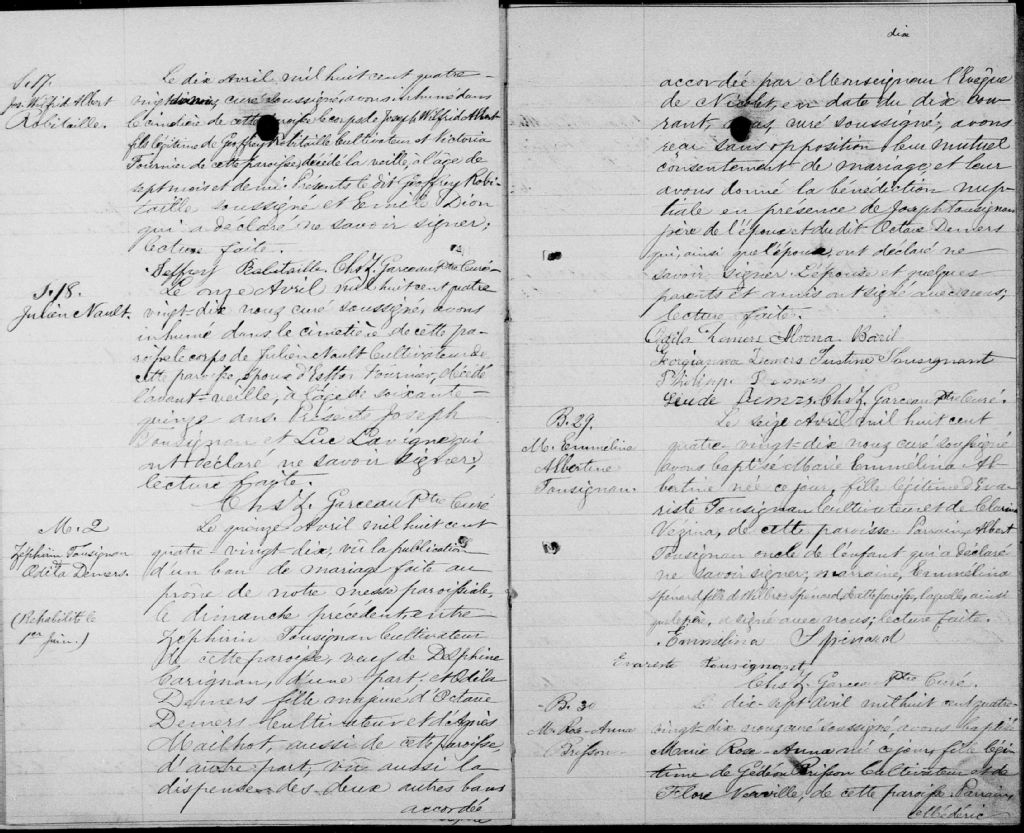 S. 17.
Jos. Wilfrid Albert
Robitaille.
Le dix Avril mil huit cent quatre-
vingt-dix nous curé soussigné, avons inhumé dans
le cimetière de cette paroisse le corps de Joseph Wilfrid Albert
fils légitime de Geoffrey Robitaille Cultivateur et Victoria
Fournier de cette paroisse, décédé la veille, à l'âge de
sept mois et demi. Présents le dit Geoffrey Robi-
taille soussigné et Emile Dion
qui a déclaré ne savoir signer;
lecture faite.
Jeffrey Robitaille Chs Z. Garceau Ptre Curé
S. 18.
Julien Nault.
Le onze Avril mil huit cent quatre
vingt-dix nous curé soussigné, avons
inhumé dans le cimetière de cette pa-
roisse le corps de Julien Nault Cultivateur de
cette paroisse, époux d'Esther Fournier, décédé
l'avant-veille, à l'âge de soixante-
quinze ans. Présents Joseph
Tousignan et Luc Lavigne qui
ont déclaré ne savoir signer;
lecture faite.
Chs Z. Garceau Ptre Curé
M. 2
Zéphirin Tousignan
Odila Demers.
(Réhabilité le
1er Juin.)
Le quinze Avril mil huit cent
quatre-vingt-dix, vû la publication
d'un ban de mariage faite au
prône de notre messe paroissiale,
le dimanche précédent, entre
Zéphirin Tousignan Cultivateur
de cette paroisse, veuf de Delphine
Carignan, d'une part, et Odila
Demers fille majeure d'Octave
Demers Cultivateur et d'Agnès
Mailhot, aussi de cette paroisse,
d'autre part, vû aussi la
dispense des deux autres bans
accordée
dix
accordée par Monseigneur l'Evêque
de Nicolet, en date du dix cou-
rant, nous, curé soussigné, avons
reçu sans opposition leur mutuel
consentement de mariage, et leur
avons donné la bénédiction nup-
tiale en présence de Joseph Tousignan
père de l'époux et du dit Octave Demers
qui, ainsi que l'époux, ont déclaré ne
savoir signer. L'épouse et quelques
parents et amis ont signé avec nous;
lecture faite.
Odila Demers Alvina Baril
Georgianna Demers Justine Tousignant
Philipe Demers
Demers. Chs Z. Garceau Ptre Curé.
B. 29.
M. Emmelina
Albertine
Tousignan.
Le seize Avril mil huit cent
quatre-vingt-dix nous curé soussigné
avons baptisé Marie Emmélina Al-
bertine née ce jour, fille légitime d'Eva-
riste Tousignan Cultivateur et de Clarina
Vézina, de cette paroisse. Parrain, Albert
Tousignan oncle de l'enfant qui a déclaré
ne savoir signer; marraine, Emmélina
Spénard fille d' Spénard de cette paroisse, laquelle, ainsi
que le père, a signé avec nous; lecture faite.
Emmelina Spénard
Evariste tousignant
Chs Z. Garceau Ptre Curé.
B. 30
M. Rose-Anna
Brisson
Le dix-sept Avril mil huit cent quatre-
vingt-dix nous curé soussigné, avons baptisé
Marie Rose-Anna née ce jour, fille légi-
time de Gédéon Brisson Cultivateur et de
Flore Neuville, de cette paroisse. Parrain,
Médéric